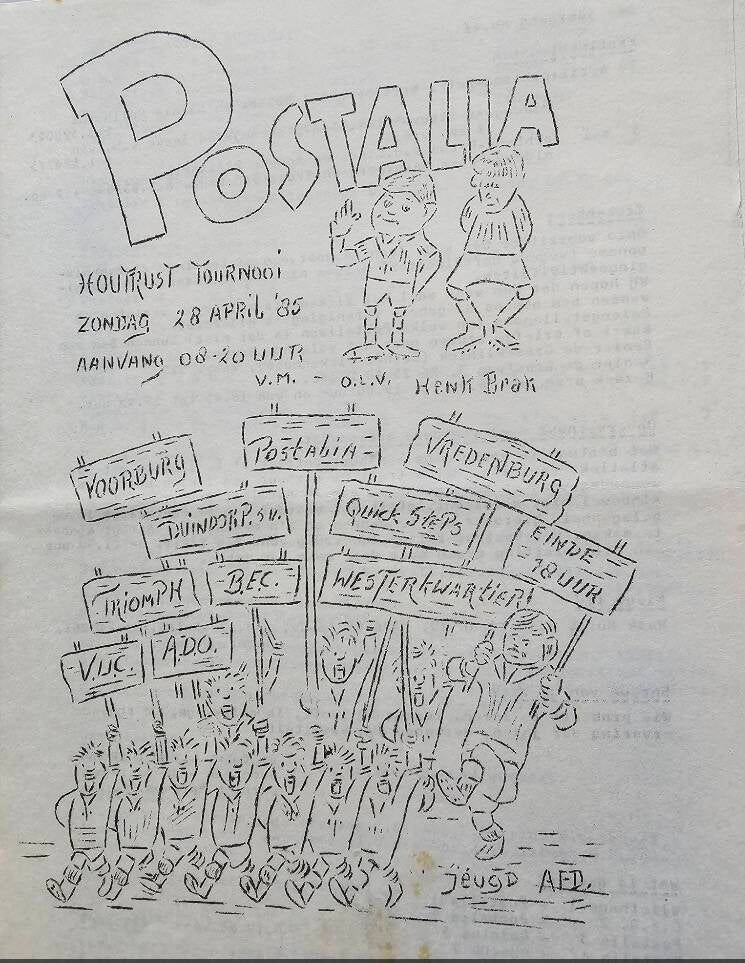 POSTALIA
HOUTRUST TOURNOOI
ZONDAG 28 APRIL '85
AANVANG 08-20 UUR
V.M. - O.L.V. HENK BRAK
VOORBURG
POSTALIA
VREDENBURG
DUINDORP.S.V.
QUICK STEPS
EINDE
18 UUR
TRIOMPH
B.E.C.
WESTERKWARTIER
V.U.C.
A.D.O.
JEUGD AFD.